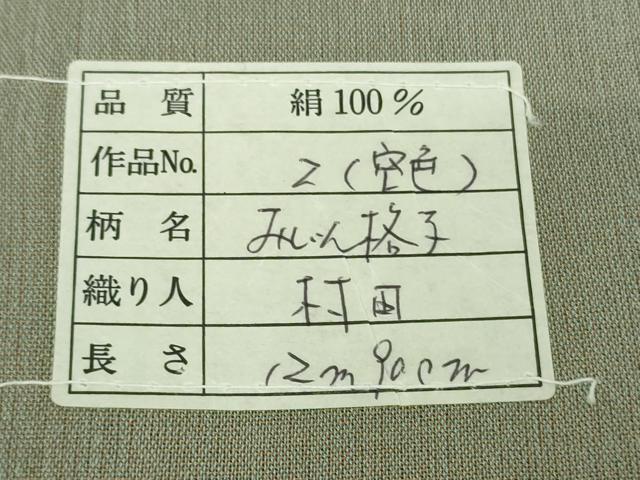 品質 絹100%
作品No. 2(空色)
柄名 みじん格子
織り人 村田
長さ 12m90cm